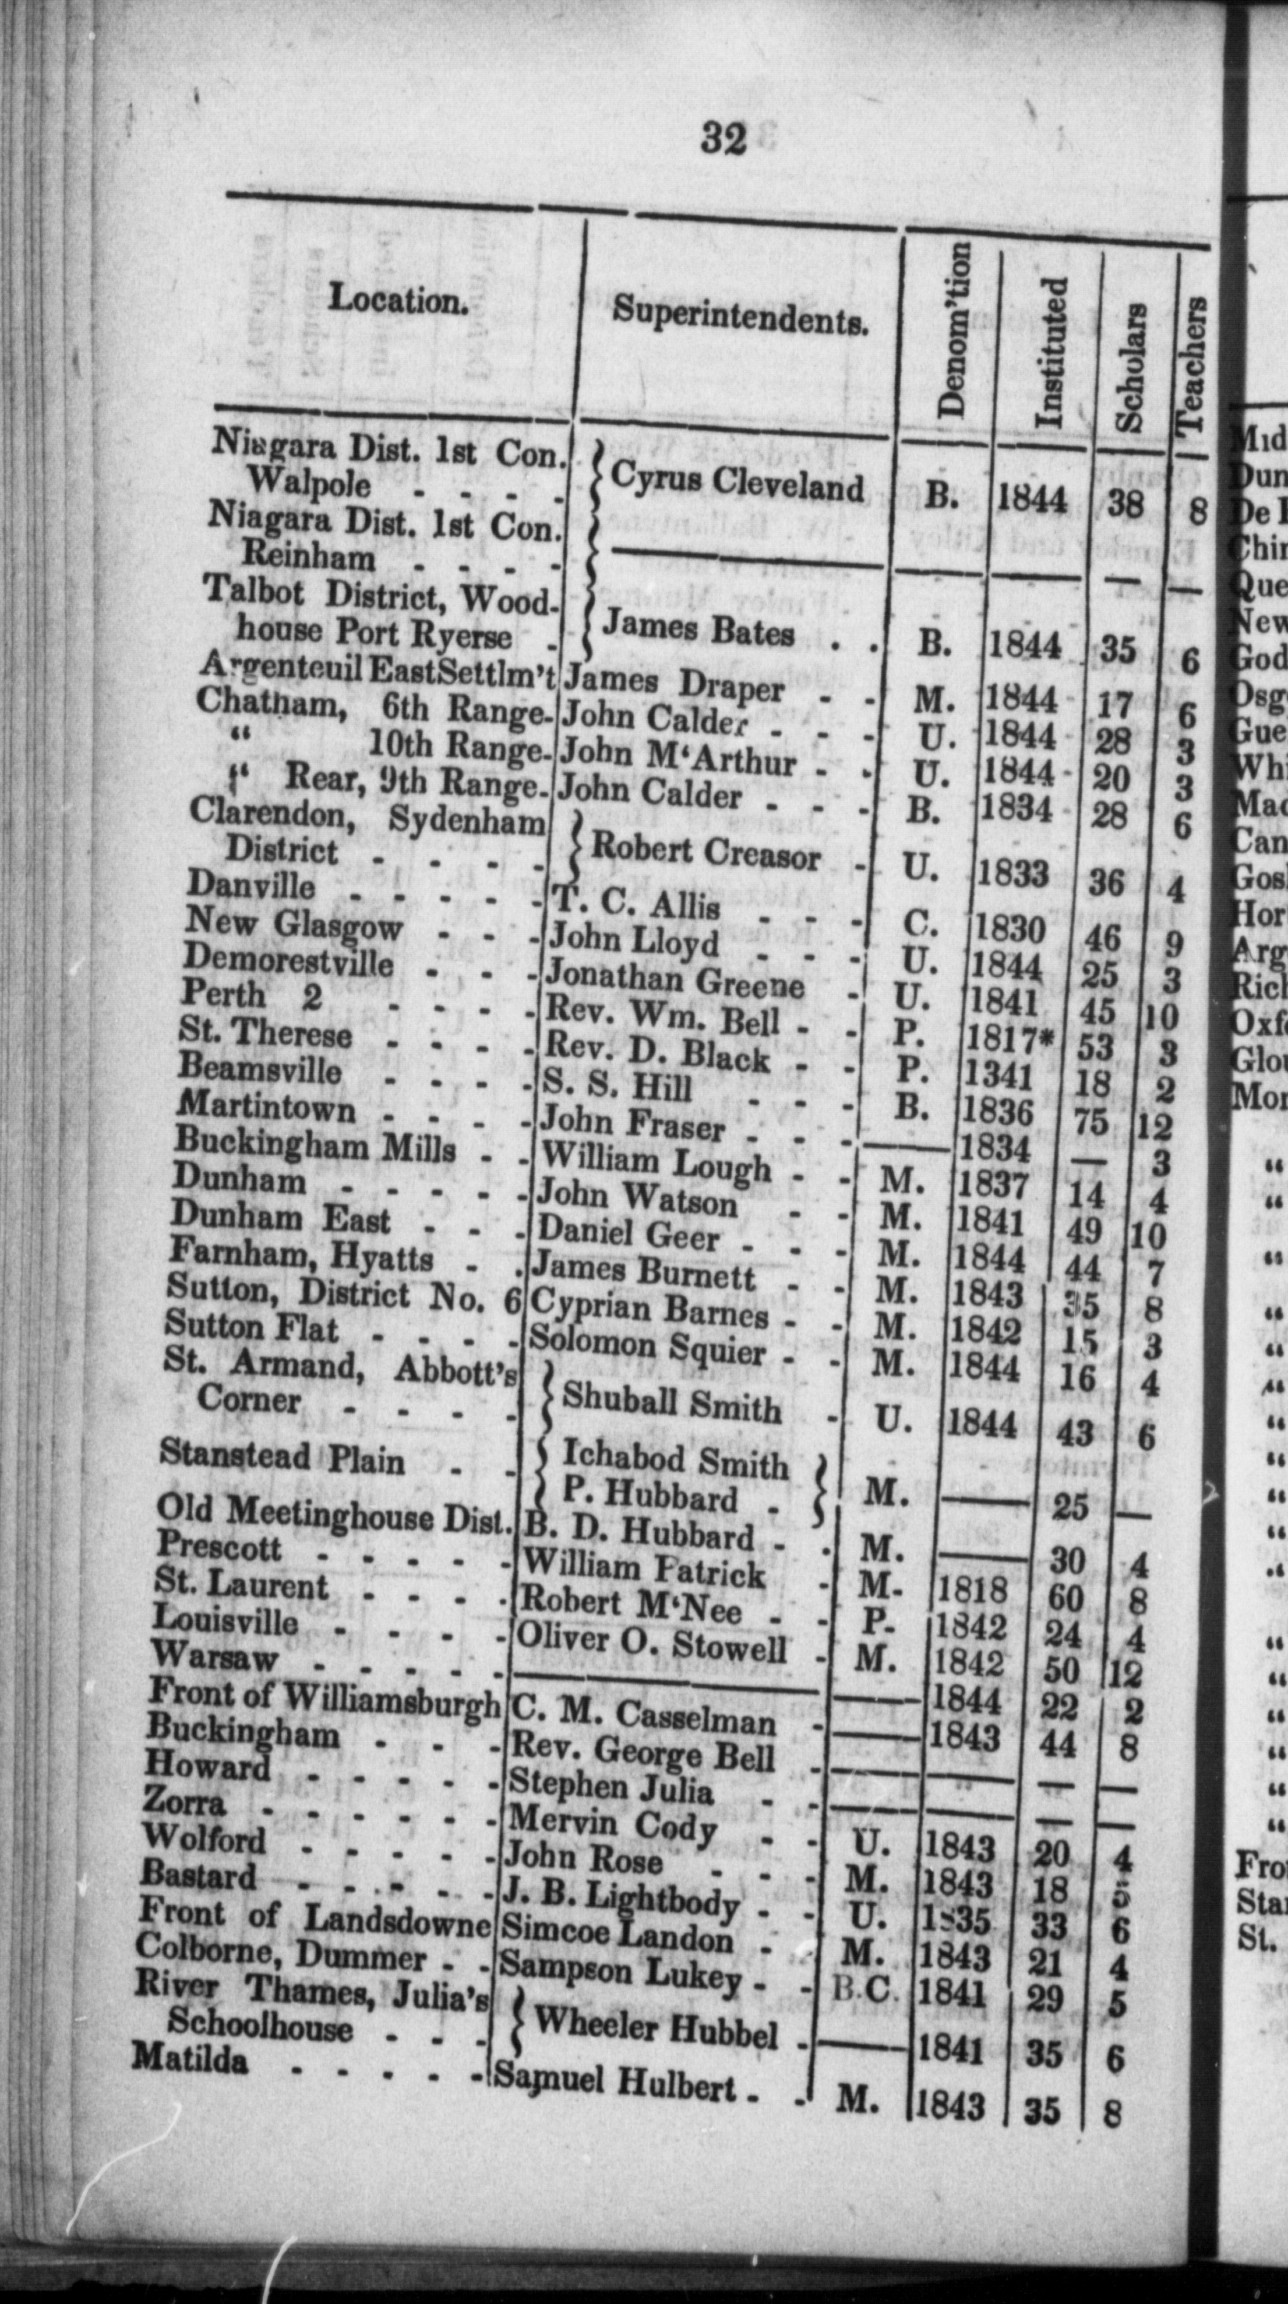 32
Location. Superintendents. Denom'tion Instituted Scholars Teachers
Niagara Dist. 1st Con.
Walpole - - - - } Cyrus Cleveland B. 1844 38 8
Niagara Dist. 1st Con.
Reinham - - - - } —— —— —— — —
Talbot District, Wood-
house Port Ryerse - } James Bates . . B. 1844 35 6
Argenteuil East Settlm't James Draper - - M. 1844 17 6
Chatham, 6th Range- John Calder - - - U. 1844 28 3
“ 10th Range- John M‘Arthur - - U. 1844 20 3
“ Rear, 9th Range- John Calder - - - B. 1834 28 6
Clarendon, Sydenham
District - - - - } Robert Creasor - U. 1833 36 4
Danville - - - - - T. C. Allis - - - C. 1830 46 9
New Glasgow - - - John Lloyd - - - U. 1844 25 3
Demorestville - - - Jonathan Greene - U. 1841 45 10
Perth 2 - - - - Rev. Wm. Bell - - P. 1817* 53 3
St. Therese - - - - Rev. D. Black - - P. 1341 18 2
Beamsville - - - - S. S. Hill - - - B. 1836 75 12
Martintown - - - - John Fraser - - - —— 1834 — 3
Buckingham Mills - - William Lough - - M. 1837 14 4
Dunham - - - - - John Watson - - M. 1841 49 10
Dunham East - - - Daniel Geer - - - M. 1844 44 7
Farnham, Hyatts - - James Burnett - - M. 1843 35 8
Sutton, District No. 6 Cyprian Barnes - - M. 1842 15 3
Sutton Flat - - - - Solomon Squier - - M. 1844 16 4
St. Armand, Abbott's
Corner - - - - } Shuball Smith - U. 1844 43 6
Stanstead Plain - - } Ichabod Smith
P. Hubbard - } M. —— 25 —
Old Meetinghouse Dist. B. D. Hubbard - - M. —— 30 4
Prescott - - - - - William Patrick - M- 1818 60 8
St. Laurent - - - - Robert M‘Nee - - P- 1842 24 4
Louisville - - - - Oliver O. Stowell - M. 1842 50 12
Warsaw - - - - - —— —— 1844 22 2
Front of Williamsburgh C. M. Casselman - —— 1843 44 8
Buckingham - - - Rev. George Bell - —— —— — —
Howard - - - - - Stephen Julia - - —— —— — —
Zorra - - - - - - Mervin Cody - - U. 1843 20 4
Wolford - - - - - John Rose - - - M. 1843 18 5
Bastard - - - - - J. B. Lightbody - - U. 1835 33 6
Front of Landsdowne Simcoe Landon - - M. 1843 21 4
Colborne, Dummer - - Sampson Lukey - - B.C. 1841 29 5
River Thames, Julia's
Schoolhouse - - - } Wheeler Hubbel - —— 1841 35 6
Matilda - - - - - Samuel Hulbert - - M. 1843 35 8